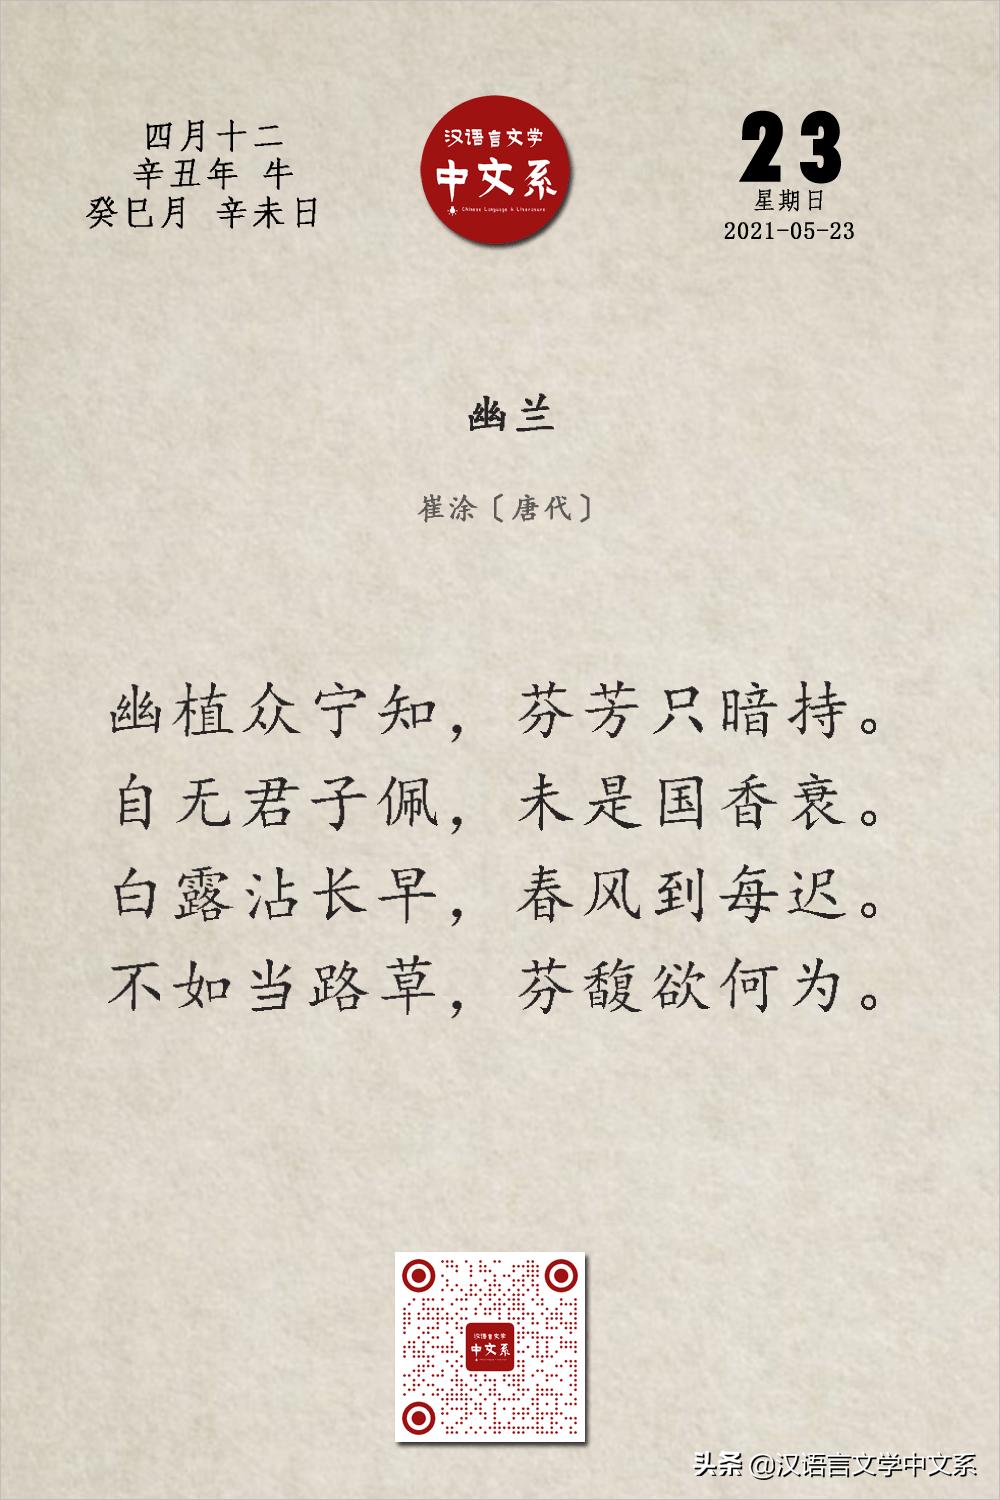 四月十二
辛丑年 牛
癸巳月 辛未日
汉语言文学
中文系
Chinese Language & Literature
23
星期日
2021-05-23
幽兰
崔涂〔唐代〕
幽植众宁知，芬芳只暗持。
自无君子佩，未是国香衰。
白露沾长早，春风到每迟。
不如当路草，芬馥欲何为。
汉语言文学
中文系
头条 @汉语言文学中文系